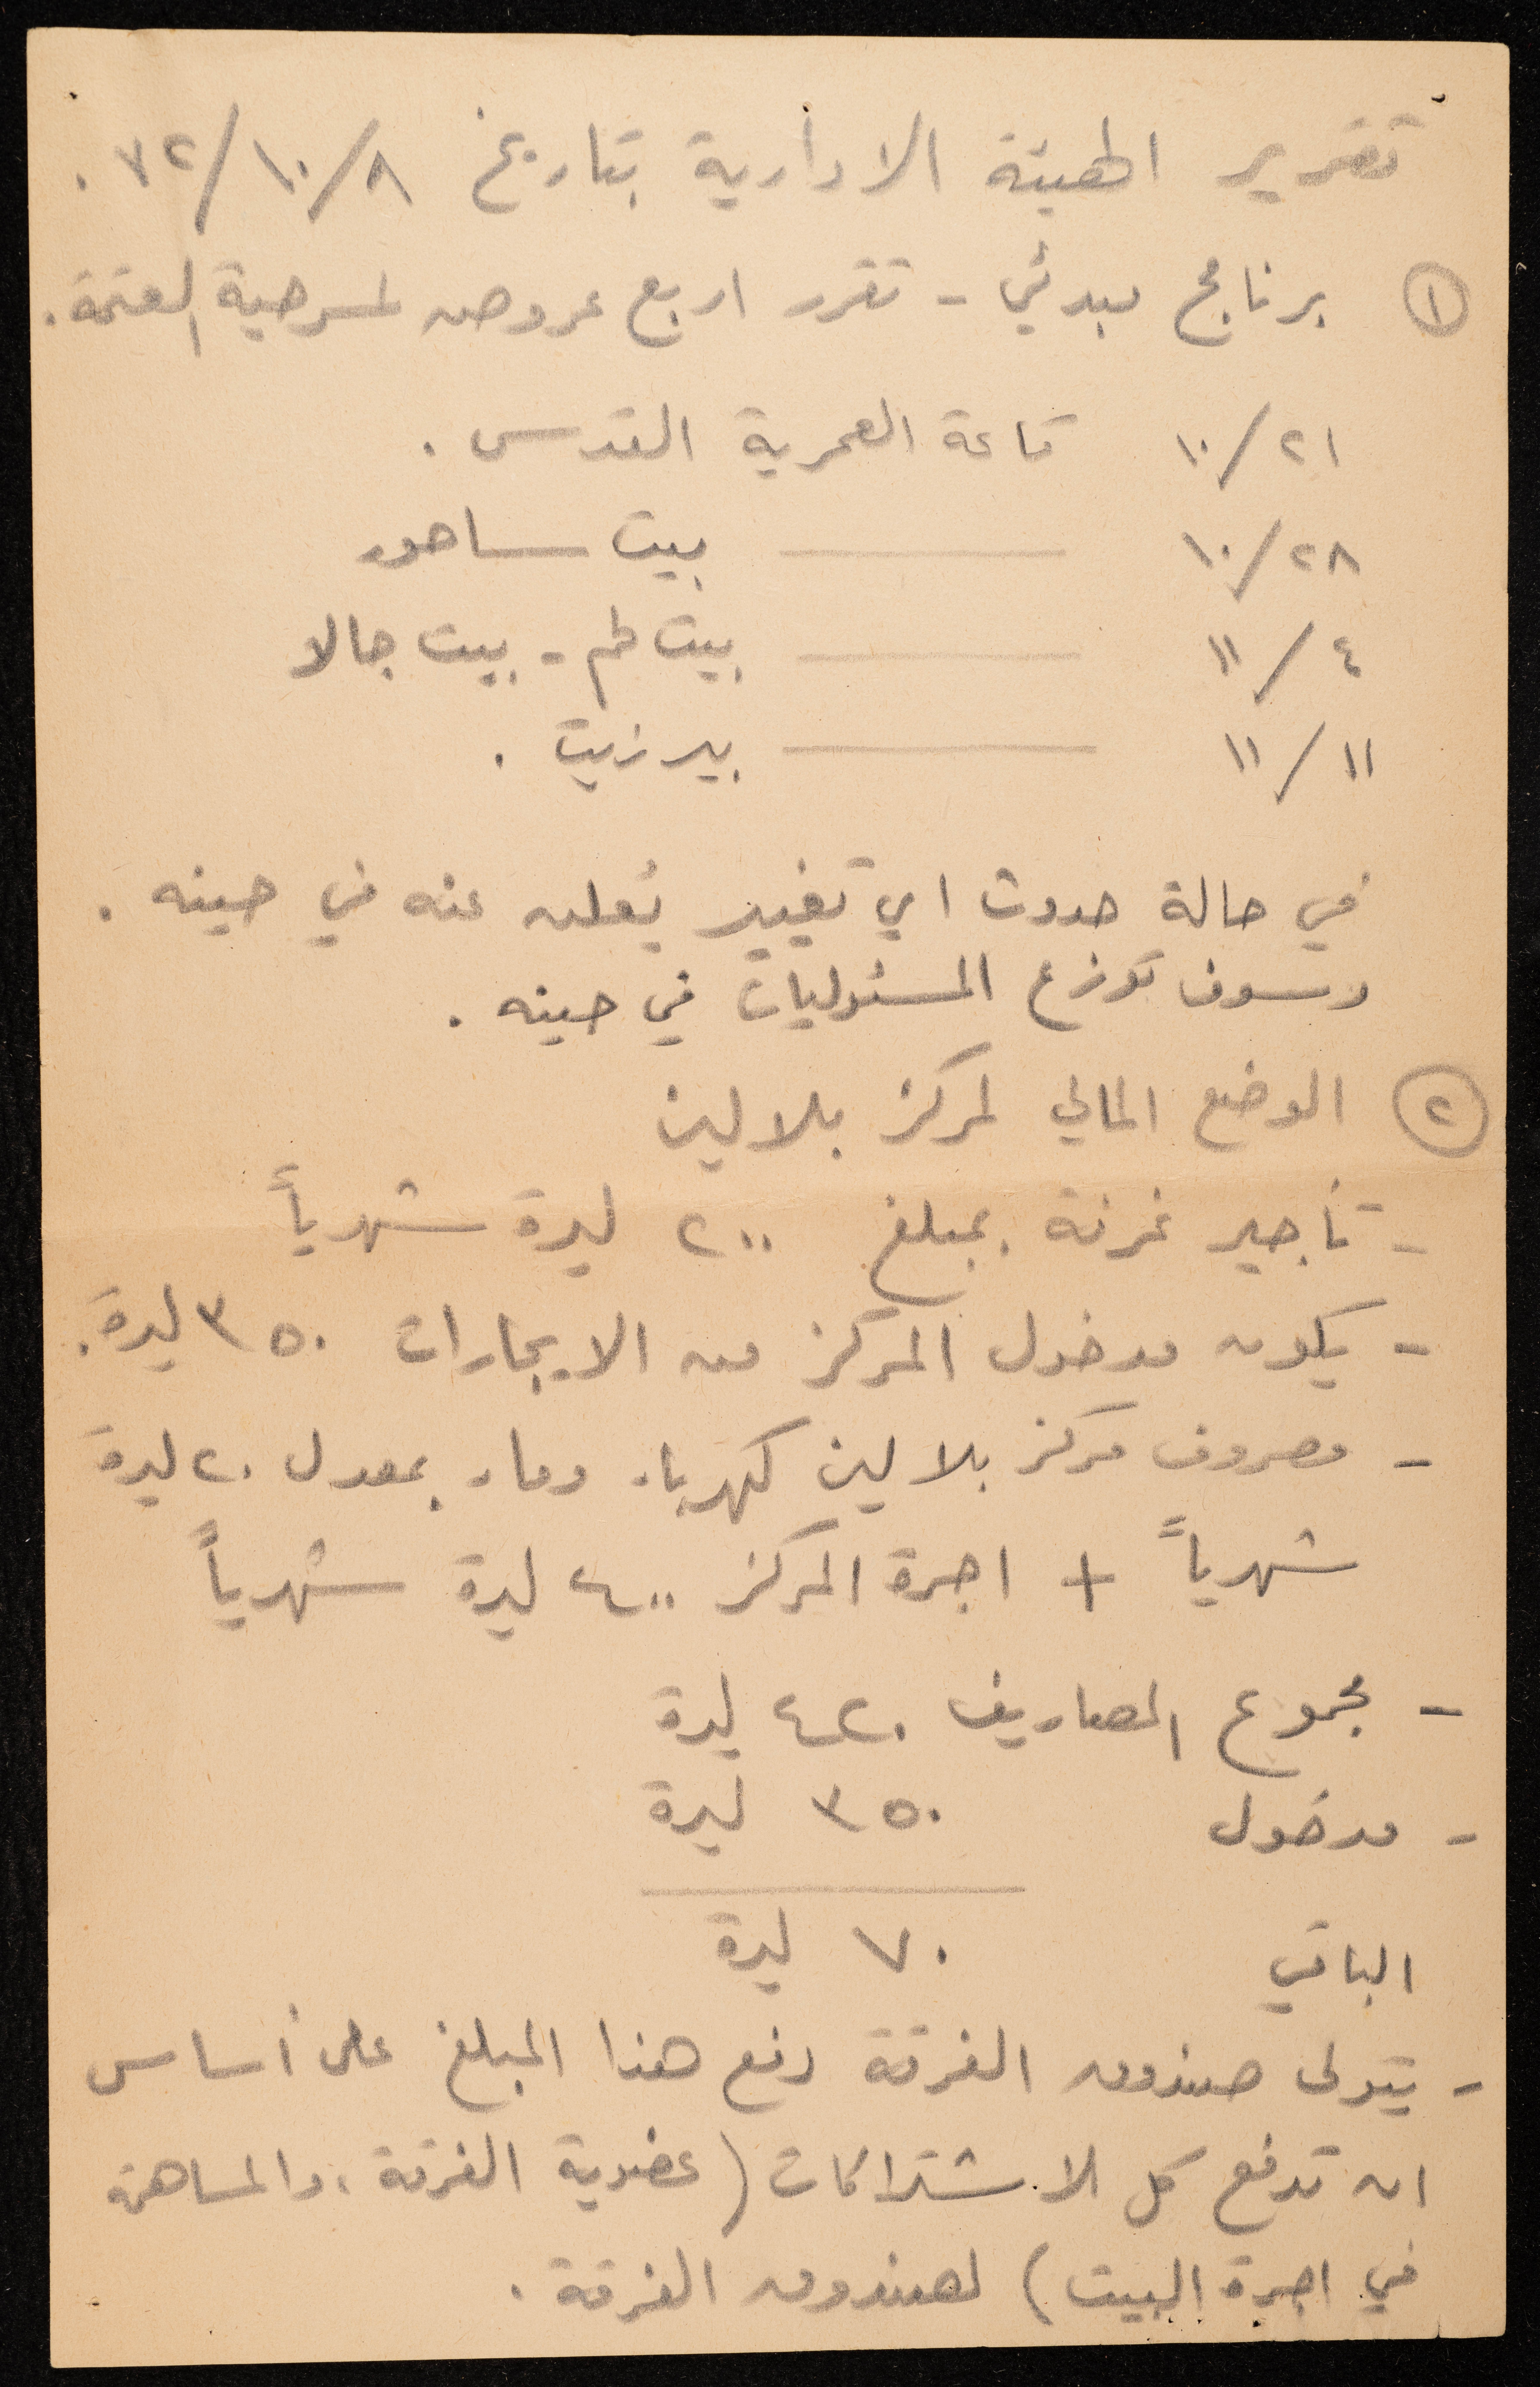 تقرير الهيئة الادارية بتاريخ ٨/١٠/٧٢ .
١ برنامج مبدئي - تقرر اربع عروض لمسرحية العتمة .
٢١/١٠ قاعة العمرية القدس .
٢٨/١٠ ——— بيت ساحور
٤/١١ ——— بيت لحم - بيت جالا
١١/١١ ——— بير زيت .
في حالة حدوث اي تغيير يُعلن عنه في حينه .
وسوف توزع المسئوليات في حينه .
٢ الوضع المالي لمركز بلالين
- تأجير غرفة بمبلغ ٢٠٠ ليرة شهرياً
- يكون مدخول المركز من الايجارات ٣٥٠ ليرة .
- مصروف مركز بلالين كهرباء وماء بمعدل ٢٠ ليرة
شهرياً + اجرة المركز ٤٠٠ ليرة شهرياً
- مجموع المصاريف ٤٢٠ ليرة
- مدخول ٣٥٠ ليرة
الباقي ٧٠ ليرة
- يتولى صندوق الفرقة دفع هذا المبلغ على أساس
ان تدفع كل الاشتراكات (عضوية الفرقة ، والمساهمة
في اجرة البيت) لصندوق الفرقة .